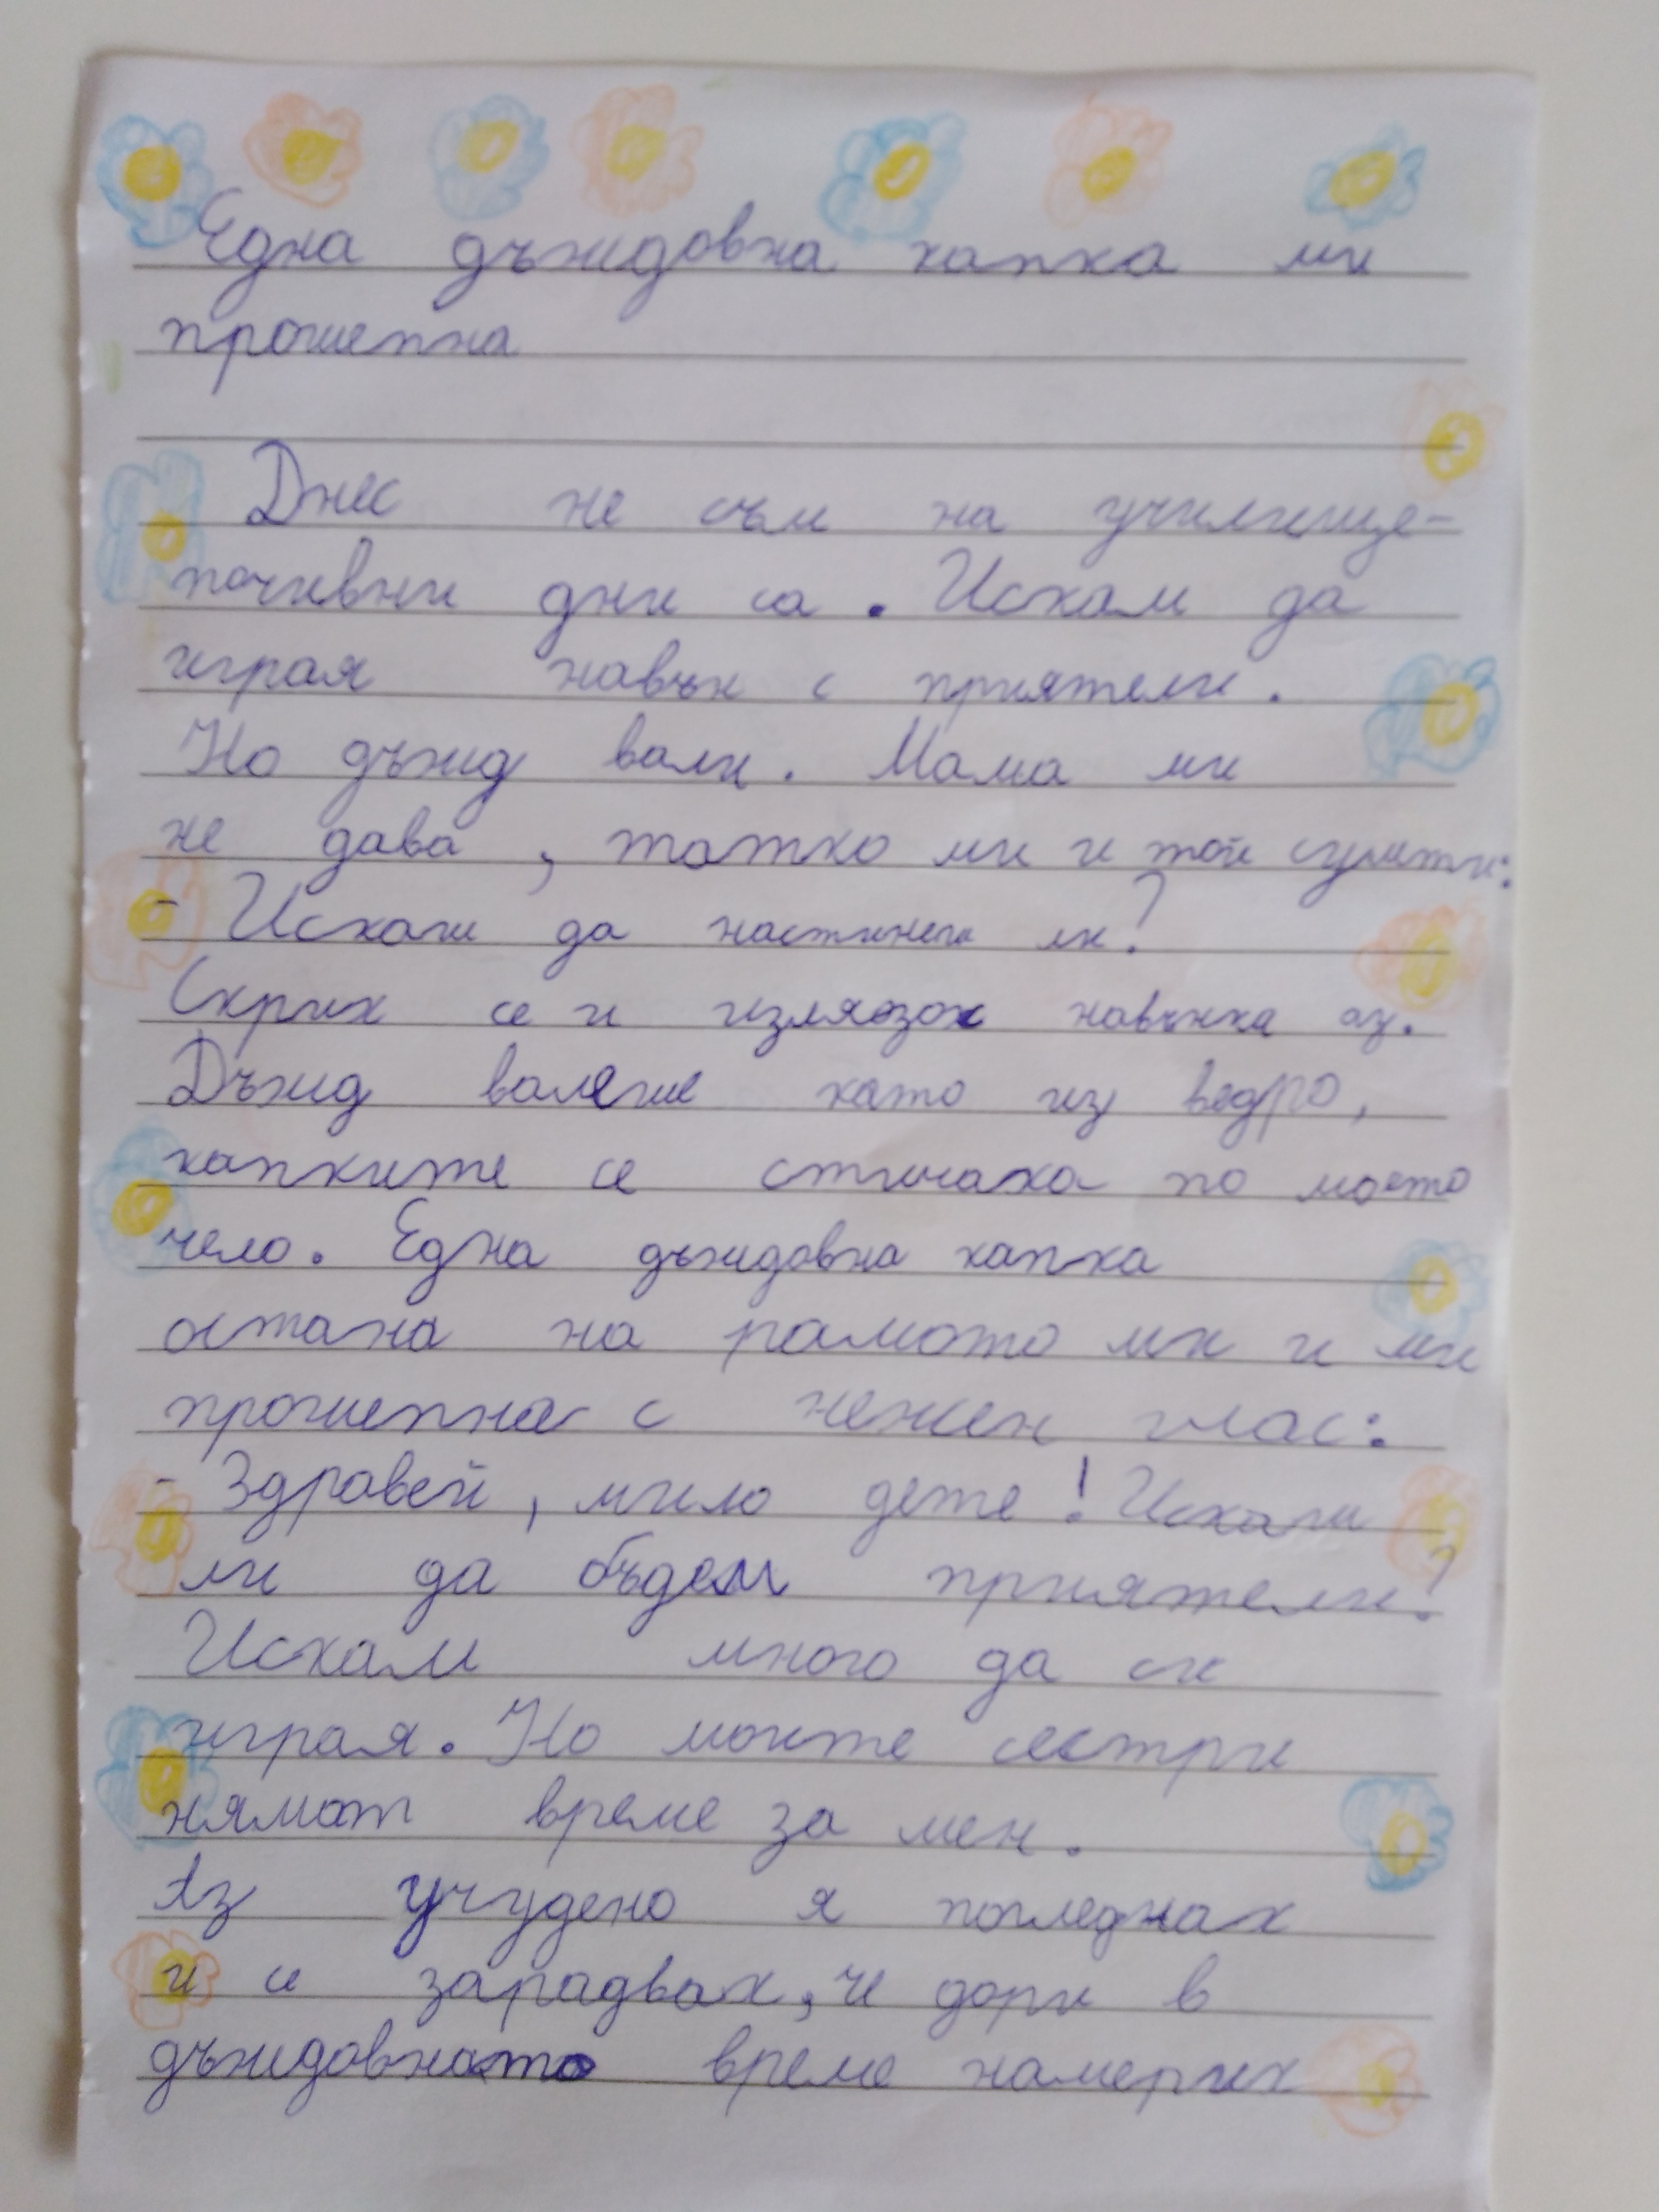 Една дъждовна капка ми
прошепна
Днес не съм на училище-
почивни дни са. Искам да
играя навън с приятели.
Но дъжд вали. Мама ми
не дава, татко ми и той
- Искаш да настинеш ли?
Скрих се и излязох навънка аз.
Дъжд валеше като из ведро,
капките се стичаха по моето
чело. Една дъждовна капка
остана на рамото ми и ми
прошепна с нежен глас:
- Здравей, мило дете! Искаш
ли да бъдем приятели?
Искам много да си
играя. Но моите сестри
нямат време за мен.
Аз учудено я погледнах
и се зарадвах, че дори в
дъждовното време намерих